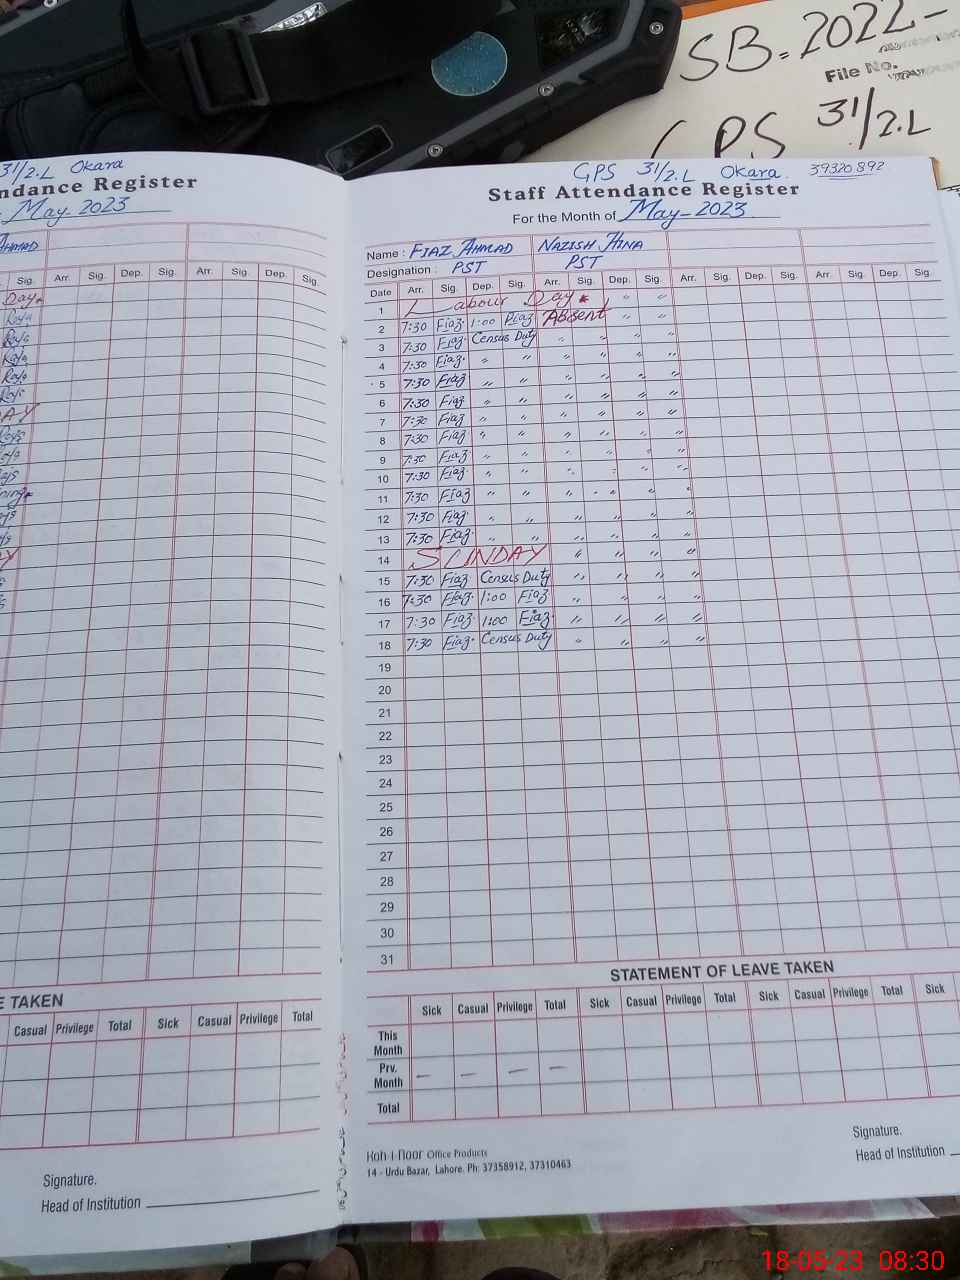 SB. 2022-
File No.
GPS 31/2.L
31/2.L Okara
ndance Register
May-2023
AHMAD
Sig. Arr. Sig. Dep. Sig. Arr. Sig. Dep. Sig.
Day
E TAKEN
Casual Privilege Total Sick Casual Privilege Total
Signature.
Head of Institution
GPS 31/2.L Okara. 39320892
Staff Attendance Register
For the Month of May-2023
Name : FIAZ AHMAD NAZISH HINA
Designation : PST PST
Date Arr. Sig. Dep. Sig. Arr. Sig. Dep. Sig. Arr. Sig. Dep. Sig. Arr. Sig. Dep. Sig.
1 Labour Day " "
2 7:30 Fiaz 1:00 Fiaz Absent " "
3 7:30 Fiaz Census Duty " " " "
4 7:30 Fiaz " " " " " "
5 7:30 Fiaz " " " " " "
6 7:30 Fiaz " " " " " "
7 7:30 Fiaz " " " " " "
8 7:30 Fiaz " " " " " "
9 7:30 Fiaz " " " " " "
10 7:30 Fiaz " " " " " "
11 7:30 Fiaz " " " " " "
12 7:30 Fiaz " " " " " "
13 7:30 Fiaz " " " " " "
14 SUNDAY " " " "
15 7:30 Fiaz Census Duty " " " "
16 7:30 Fiaz 1:00 Fiaz " " " "
17 7:30 Fiaz 1:00 Fiaz " " " "
18 7:30 Fiaz Census Duty " " " "
19
20
21
22
23
24
25
26
27
28
29
30
31
STATEMENT OF LEAVE TAKEN
Sick Casual Privilege Total Sick Casual Privilege Total Sick Casual Privilege Total Sick
This Month
Prv. Month — — — —
Total
Koh-i-noor Office Products
14 - Urdu Bazar, Lahore. Ph: 37358912, 37310463
Signature.
Head of Institution
18-05-23 08:30